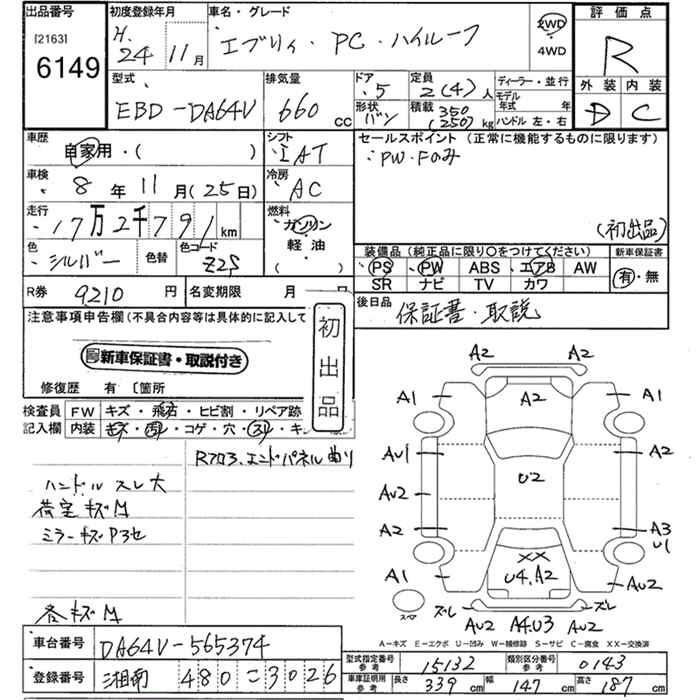 出品番号
[2163]
6149
初度登録年月
H.24年11月
車名・グレード
エブリィ・PC・ハイルーフ
2WD
4WD
評価点
R
外装 内装
D C
型式
EBD-DA64V
排気量
660cc
ドア
5
形状
バン
定員
2(4)人
積載
350
(250)kg
ディーラー・並行
モデル年式 年
ハンドル 左・右
車歴
自家用・( )
シフト
IAT
セールスポイント(正常に機能するものに限ります)
PW・Fのみ
(初出品)
車検
8年11月(25日)
冷房
AC
走行
17万2千791km
燃料
ガソリン
軽油
( )
色
シルバー
色替
色コード
Z2S
装備品(純正品に限り○をつけてください)
PS PW ABS エアB AW
SR ナビ TV カワ
新車保証書
有・無
R券 9210円
名変期限 月 日
後日品
保証書・取説
注意事項申告欄(不具合内容等は具体的に記入して
初出品
新車保証書・取説付き
修復歴 有 〔箇所
検査員記入欄
FW キズ・飛石・ヒビ割・リペア跡
内装 キズ・・コゲ・穴・スレ・キ
Rフロア、エンドパネル曲り
ハンドルスレ大
荷室キズM
ミラーキズP3セ
各キズM
A2 A2
A1 A2 A1
AU1 A2
U2
AU2
A2 A3
U1
XX
A1 U4.A2 AU2
スペア
ズレ ズレ
AU2 A4.U3 AU2
A-キズ E-エクボ U-凹み W-補修跡 S-サビ C-腐食 XX-交換済
車台番号 DA64V-565374
登録番号 湘南 480 こ 3026
型式指定番号 参考 15132
類別区分番号 参考 0143
車庫証明用 参考 長さ 339cm 幅 147cm 高さ 187cm